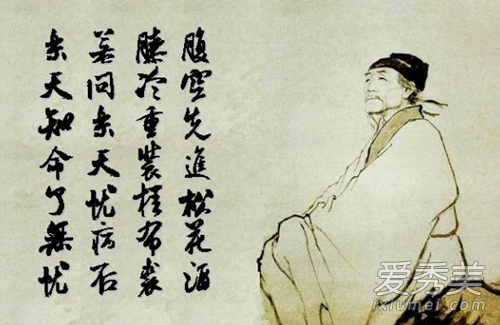 腹空先進松花酒
膝冷重裝桂布裘
若問樂天憂病否
樂天知命了無憂
爱秀美
ixiumei.com